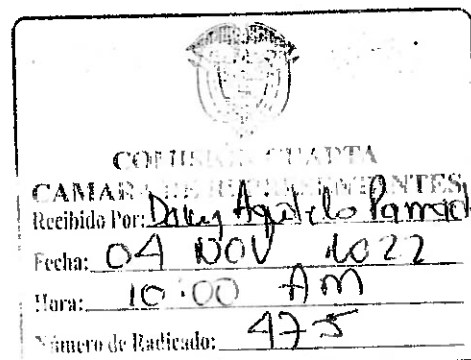 COMISIÓN CUARTA
CAMARA DE REPRESENTANTES
Recibido Por:
Fecha: 04 NOV 2022
Hora: 10:00 AM
Número de Radicado: 475